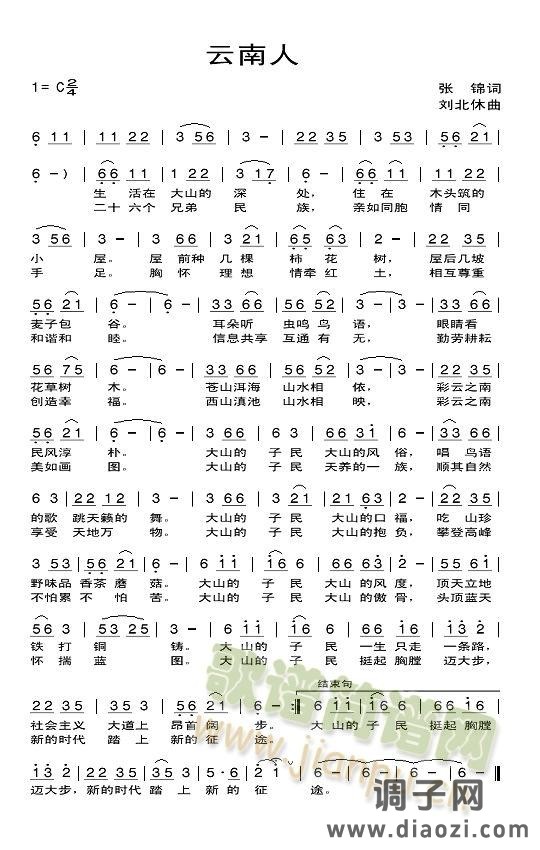 云南人
1= C 2/4
张 锦词
刘北休曲
6 11 | 11 22 | 3 56 | 3 - | 11 22 35 | 3 53 | 56 21 |
6 - ) | 66 11 | 1 22 | 3 17 | 6 - | 66 11 | 11 22 |
生 活在 大山的 深 处, 住 在 木头筑的
二十六个 兄弟 民 族, 亲如同胞 情 同
3 56 | 3 - | 3 66 | 3 21 | 65 63 | 2 - | 22 35 |
小 屋。 屋 前种 几 棵 柿 花 树, 屋后几坡
手 足。 胸 怀 理 想 情牵 红 土, 相互尊重
56 21 | 6 - | 6 - | 33 66 | 56 52 | 3 - | 3 - | 33 66 |
麦子包 谷。 耳朵听 虫鸣 鸟 语, 眼睛看
和谐和 睦。 信息共享 互通 有 无, 勤劳耕耘
56 75 | 6 - | 6 - | 33 66 | 56 52 | 3 - | 3 - | 22 35 |
花草树 木。 苍山洱海 山水相 依, 彩云之南
创造幸 福。 西山滇池 山水相 映, 彩云之南
56 21 | 6 - | 6 - | 3 66 | 3 66 | 66 31 | 6 - | 6 66 |
民风淳 朴。 大山的 子 民 大山的风 俗, 唱 鸟语
美如画 图。 大山的 子 民 天养的一 族, 顺其自然
6 3 | 22 12 | 3 - | 3 66 | 3 21 | 21 63 | 2 - | 2 35 |
的歌 跳天籁的 舞。 大山的 子 民 大山的口 福, 吃 山珍
享受 天地万 物。 大山的 子 民 大山的抱 负, 攀登高峰
3 53 | 56 21 | 6 - | 6 11 | 16 6 | 66 63 | 2 - | 22 35 |
野味品 香茶 蘑 菇。 大 山的 子 民 大山的风 度, 顶天立地
不怕累 不 怕 苦。 大山的 子 民 大山的傲 骨, 头顶蓝天
56 3 | 53 25 | 3 - | 6 11 | 16 6 | 66 63 | 6 12 |
铁 打 铜 铸。 大 山的 子 民 一生 只走 一条路,
怀 揣 蓝 图。 大 山的 子 民 挺起 胸膛 迈大步,
结束句
22 35 | 35 3 | 56 21 | 6 - :‖ 6 11 | 16 6 | 66 11 |
社会主义 大道上 昂首 阔 步。 大 山的 子 民 挺起 胸膛
新的时代 踏 上 新的 征 途。
6 132 | 22 35 | 35 3 | 5·6 | 2 1 | 6 - | 6 - | 6 - |
迈大步, 新的时代 踏 上 新 的 征 途。
歌谱简谱网
www.jianpu.cn
调子网
www.diaozi.com